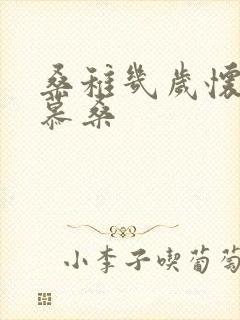 桑稚幾歲懷
慕桑
小李子喫葡萄